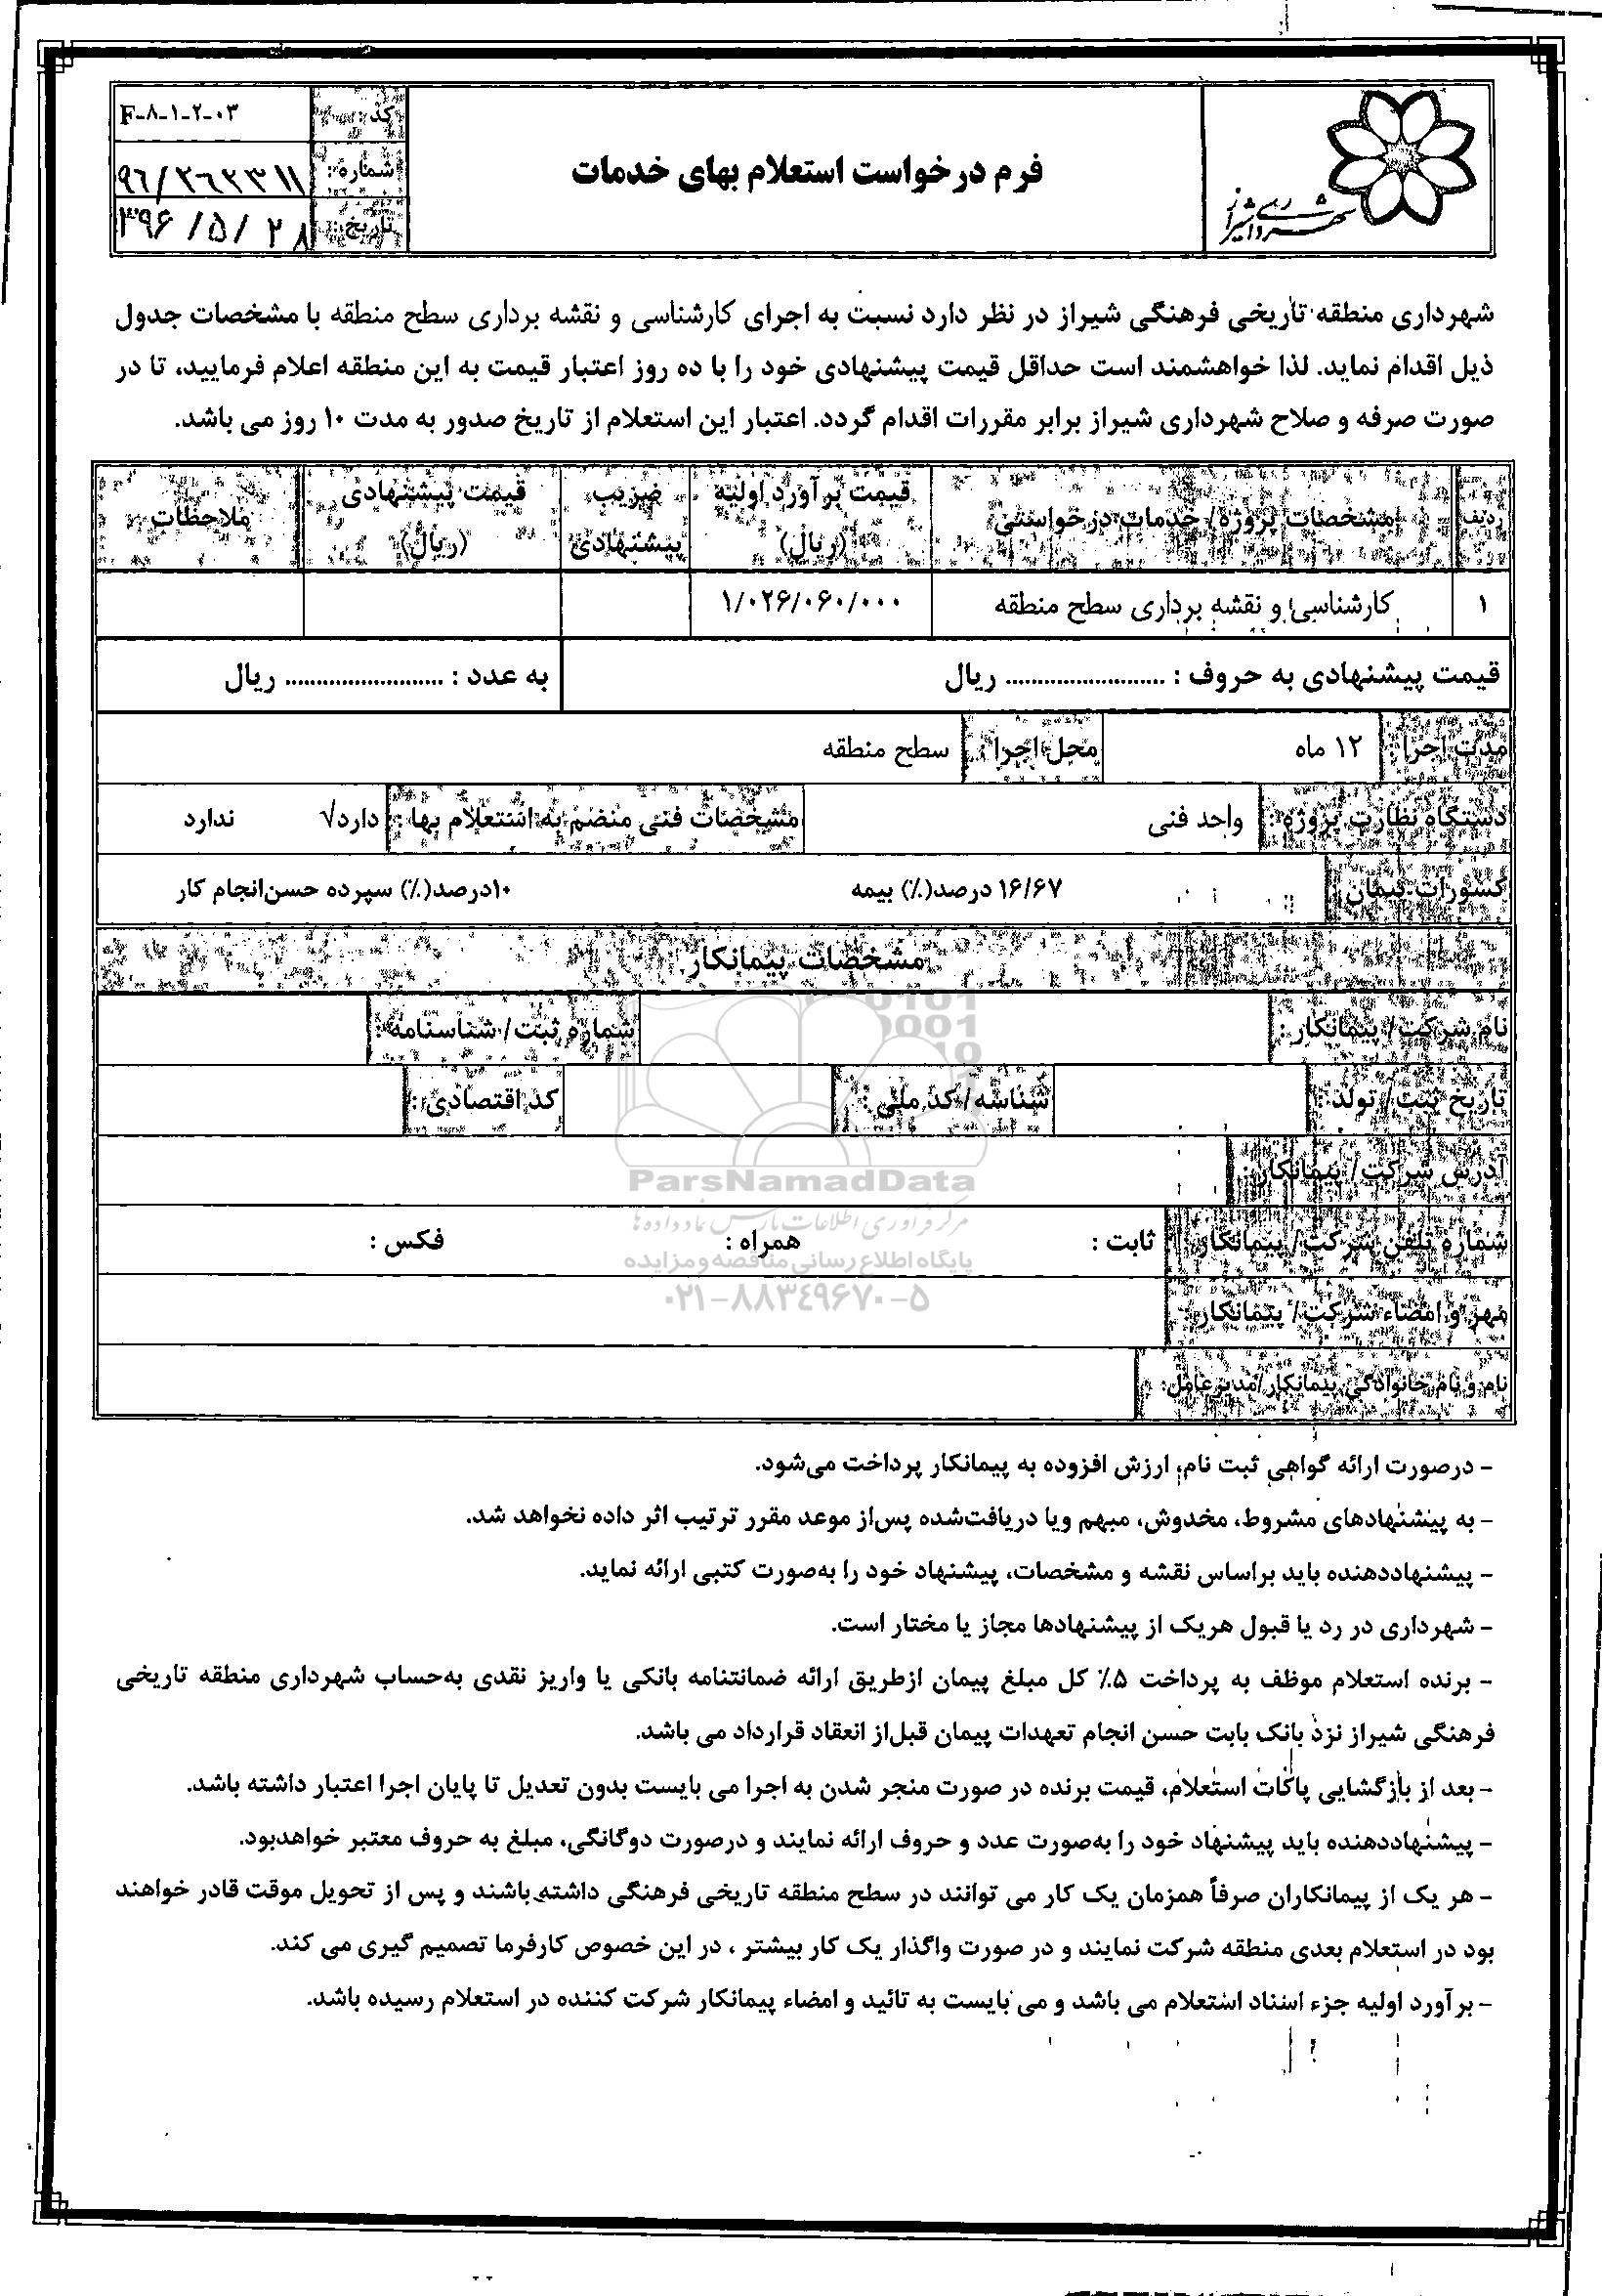 شهرداری شیراز
فرم درخواست استعلام بهای خدمات
کد: F-۸-۱-۲-۰۳
شماره: ۹۶/۲۶۲۳۱۱
تاریخ: ۳۹۶/۵/۲۸
شهرداری منطقه تاریخی فرهنگی شیراز در نظر دارد نسبت به اجرای کارشناسی و نقشه برداری سطح منطقه با مشخصات جدول
ذیل اقدام نماید. لذا خواهشمند است حداقل قیمت پیشنهادی خود را با ده روز اعتبار قیمت به این منطقه اعلام فرمایید، تا در
صورت صرفه و صلاح شهرداری شیراز برابر مقررات اقدام گردد. اعتبار این استعلام از تاریخ صدور به مدت ۱۰ روز می باشد.
ردیف مشخصات پروژه/ خدمات درخواستی قیمت برآورد اولیه (ریال) ضریب پیشنهادی قیمت پیشنهادی (ریال) ملاحظات
۱ کارشناسی و نقشه برداری سطح منطقه ۱/۰۲۶/۰۶۰/۰۰۰
قیمت پیشنهادی به حروف : ......................... ریال به عدد : ......................... ریال
مدت اجرا : ۱۲ ماه محل اجرا : سطح منطقه
دستگاه نظارت پروژه : واحد فنی مشخصات فنی منضم به استعلام بها : دارد√ ندارد
کسورات پیمان : ۱۶/۶۷ درصد(٪) بیمه ۱۰درصد(٪) سپرده حسن‌انجام کار
مشخصات پیمانکار
نام شرکت/ پیمانکار : شماره ثبت/ شناسنامه :
تاریخ ثبت/ تولد : شناسه/ کد ملی : کد اقتصادی :
آدرس شرکت/ پیمانکار :
شماره تلفن شرکت/ پیمانکار : ثابت : همراه : فکس :
مهر و امضاء شرکت/ پیمانکار :
نام و نام خانوادگی پیمانکار/مدیرعامل:
ParsNamadData
مرکز فرآوری اطلاعات پارس نماد داده ها
پایگاه اطلاع رسانی مناقصه و مزایده
۰۲۱-۸۸۳۴۹۶۷۰-۵
- درصورت ارائه گواهی ثبت نام، ارزش افزوده به پیمانکار پرداخت می‌شود.
- به پیشنهادهای مشروط، مخدوش، مبهم ویا دریافت‌شده پس‌از موعد مقرر ترتیب اثر داده نخواهد شد.
- پیشنهاددهنده باید براساس نقشه و مشخصات، پیشنهاد خود را به‌صورت کتبی ارائه نماید.
- شهرداری در رد یا قبول هریک از پیشنهادها مجاز یا مختار است.
- برنده استعلام موظف به پرداخت ۵٪ کل مبلغ پیمان ازطریق ارائه ضمانتنامه بانکی یا واریز نقدی به‌حساب شهرداری منطقه تاریخی
فرهنگی شیراز نزد بانک بابت حسن انجام تعهدات پیمان قبل‌از انعقاد قرارداد می باشد.
- بعد از بازگشایی پاکات استعلام، قیمت برنده در صورت منجر شدن به اجرا می بایست بدون تعدیل تا پایان اجرا اعتبار داشته باشد.
- پیشنهاددهنده باید پیشنهاد خود را به‌صورت عدد و حروف ارائه نمایند و درصورت دوگانگی، مبلغ به حروف معتبر خواهدبود.
- هر یک از پیمانکاران صرفاً همزمان یک کار می توانند در سطح منطقه تاریخی فرهنگی داشته باشند و پس از تحویل موقت قادر خواهند
بود در استعلام بعدی منطقه شرکت نمایند و در صورت واگذار یک کار بیشتر ، در این خصوص کارفرما تصمیم گیری می کند.
- برآورد اولیه جزء اسناد استعلام می باشد و می بایست به تائید و امضاء پیمانکار شرکت کننده در استعلام رسیده باشد.